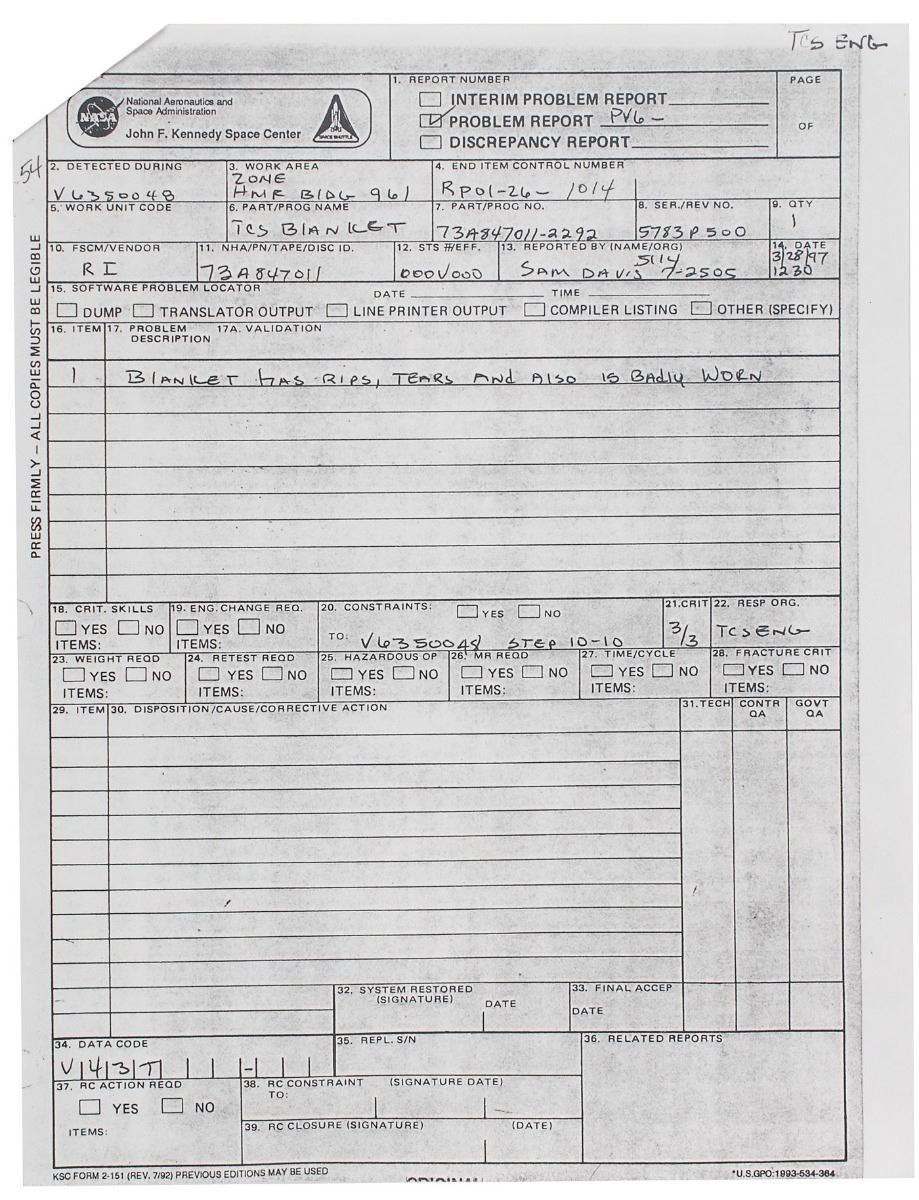 TCS ENG
NASA
National Aeronautics and
Space Administration
John F. Kennedy Space Center
SPACE SHUTTLE
1. REPORT NUMBER
INTERIM PROBLEM REPORT
PROBLEM REPORT PV6-
DISCREPANCY REPORT
PAGE
OF
54
PRESS FIRMLY – ALL COPIES MUST BE LEGIBLE
2. DETECTED DURING
V6350048
3. WORK AREA
ZONE
HMR BLDG 961
4. END ITEM CONTROL NUMBER
RP01-26- 1014
5. WORK UNIT CODE
6. PART/PROG NAME
TCS BLANKET
7. PART/PROG NO.
73A847011-2292
8. SER./REV NO.
5783P500
9. QTY
1
10. FSCM/VENDOR
RI
11. NHA/PN/TAPE/DISC ID.
73A847011
12. STS #/EFF.
000V000
13. REPORTED BY (NAME/ORG)
5114
SAM DAVIS 7-2505
14. DATE
3/28/97
1230
15. SOFTWARE PROBLEM LOCATOR DATE TIME
DUMP TRANSLATOR OUTPUT LINE PRINTER OUTPUT COMPILER LISTING OTHER (SPECIFY)
16. ITEM 17. PROBLEM DESCRIPTION 17A. VALIDATION
1 BLANKET HAS RIPS, TEARS AND ALSO IS BADLY WORN
18. CRIT. SKILLS
YES NO
ITEMS:
19. ENG. CHANGE REQ.
YES NO
ITEMS:
20. CONSTRAINTS: YES NO
TO: V6350048 STEP 10-10
21. CRIT
3/3
22. RESP ORG.
TCS ENG
23. WEIGHT REQD
YES NO
ITEMS:
24. RETEST REQD
YES NO
ITEMS:
25. HAZARDOUS OP
YES NO
ITEMS:
26. MR REQD
YES NO
ITEMS:
27. TIME/CYCLE
YES NO
ITEMS:
28. FRACTURE CRIT
YES NO
ITEMS:
29. ITEM 30. DISPOSITION/CAUSE/CORRECTIVE ACTION 31. TECH CONTR QA GOVT QA
32. SYSTEM RESTORED
(SIGNATURE) DATE
33. FINAL ACCEP
DATE
34. DATA CODE
V|4|3|T| | | |-| | |
35. REPL. S/N
36. RELATED REPORTS
37. RC ACTION REQD
YES NO
ITEMS:
38. RC CONSTRAINT (SIGNATURE DATE)
TO:
39. RC CLOSURE (SIGNATURE) (DATE)
KSC FORM 2-151 (REV. 7/92) PREVIOUS EDITIONS MAY BE USED
ORIGINAL
*U.S.GPO:1993-534-364